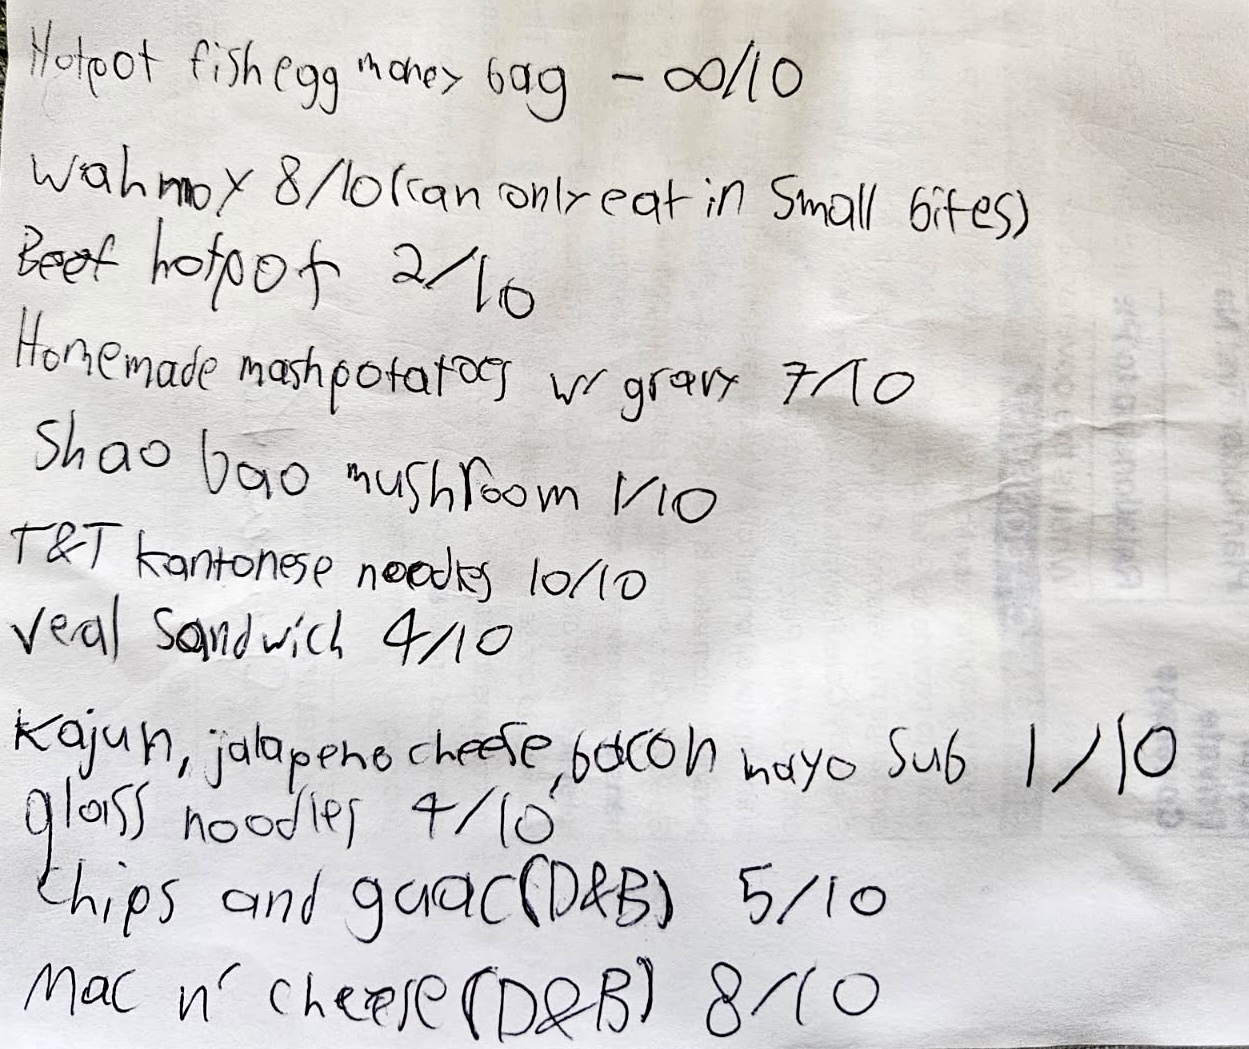 Hotpot fish egg money bag - ∞/10
wah moy 8/10(can only eat in small bites)
Beef hotpot 2/10
Homemade mashpotatoes w/ gravy 7/10
Shao bao mushroom 1/10
T&T kantonese noodles 10/10
veal sandwich 4/10
kajun, jalapeno cheese, bacon mayo sub 1/10
glass noodles 4/10
chips and guac(D&B) 5/10
Mac n' cheese(D&B) 8/10